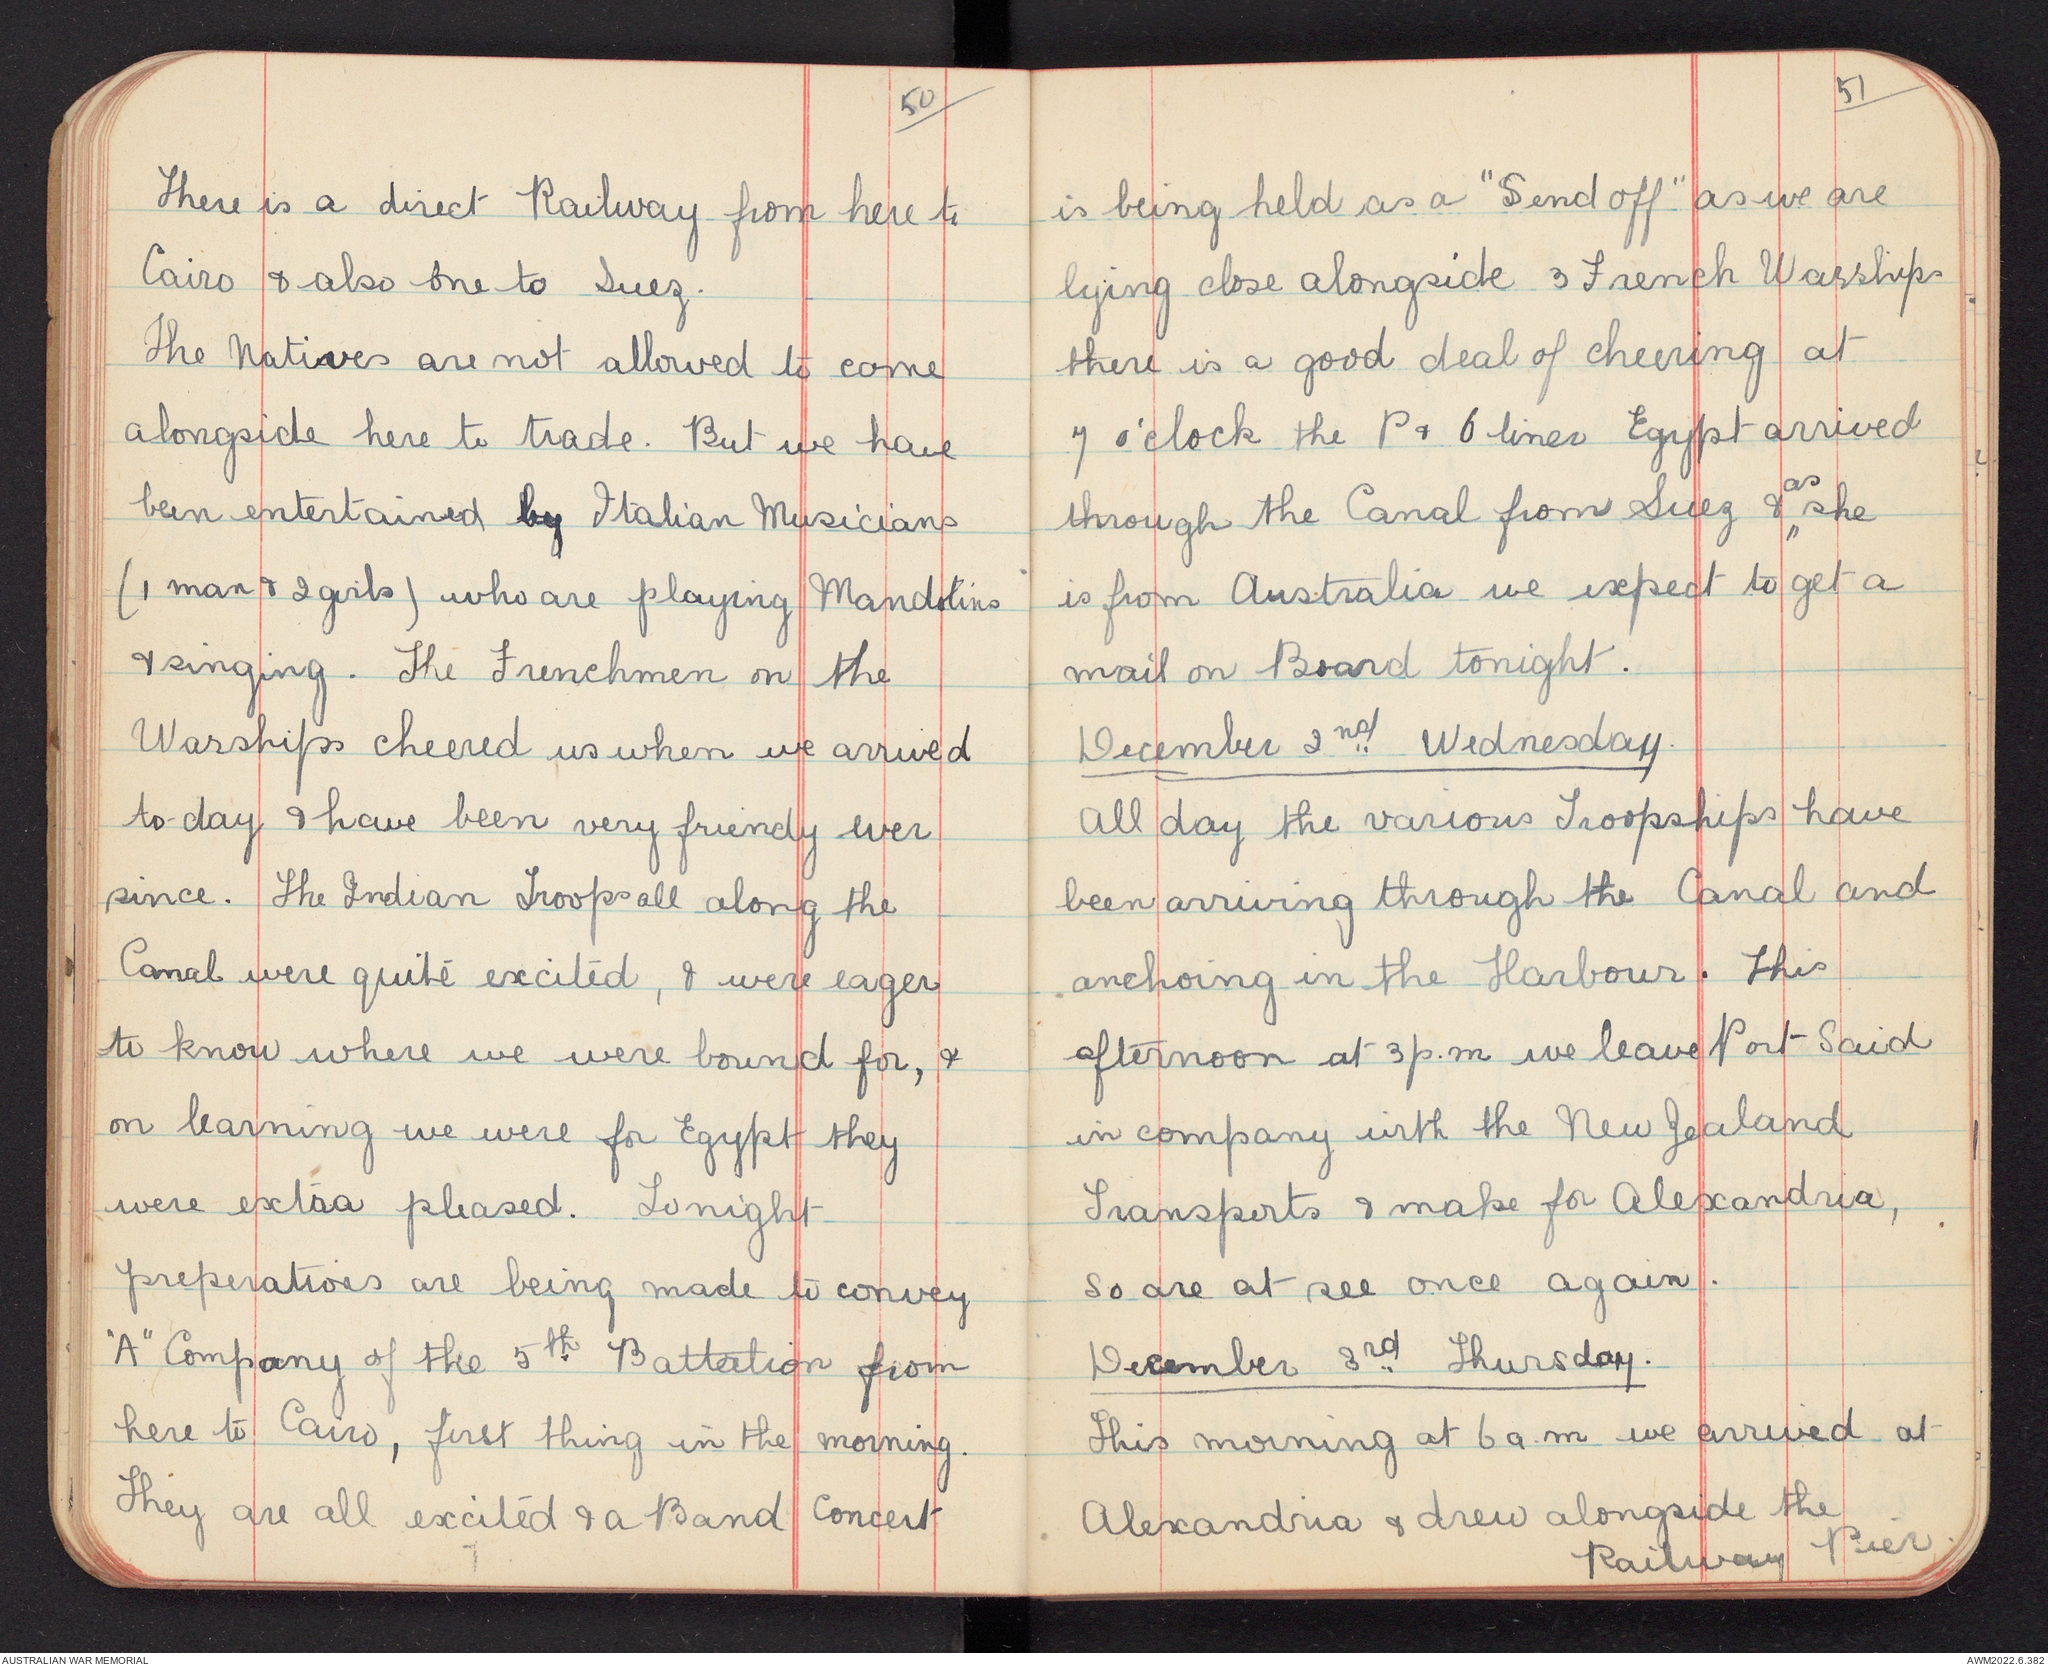 50
There is a direct Railway from here to
Cairo & also one to Suez.
The Natives are not allowed to come
alongside here to trade. But we have
been entertained by Italian Musicians
(1 man & 2 girls) who are playing Mandolins
& singing. The Frenchmen on the
Warships cheered us when we arrived
to-day & have been very friendy ever
since. The Indian Troops all along the
Canal were quite excited, & were eager
to know where we were bound for, &
on learning we were for Egypt they
were extra pleased. Tonight
preperations are being made to convey
"A" Company of the 5th Battalion from
here to Cairo, first thing in the morning.
They are all excited & a Band Concert
51
is being held as a "Send off" as we are
lying close alongside 3 French Warships
there is a good deal of cheering at
7 o'clock the P & O liner Egypt arrived
through the Canal from Suez & as she
is from Australia we expect to get a
mail on Board tonight.
December 2nd Wednesday.
All day the various Troopships have
been arriving through the Canal and
anchoing in the Harbour. This
afternoon at 3 p.m we leave Port Said
in company with the New Zealand
Transports & make for Alexandria,
so are at see once again.
December 3rd Thursday.
This morning at 6 a.m we arrived at
Alexandria & drew alongside the
Railway Pier.
AUSTRALIAN WAR MEMORIAL
AWM2022.6.382